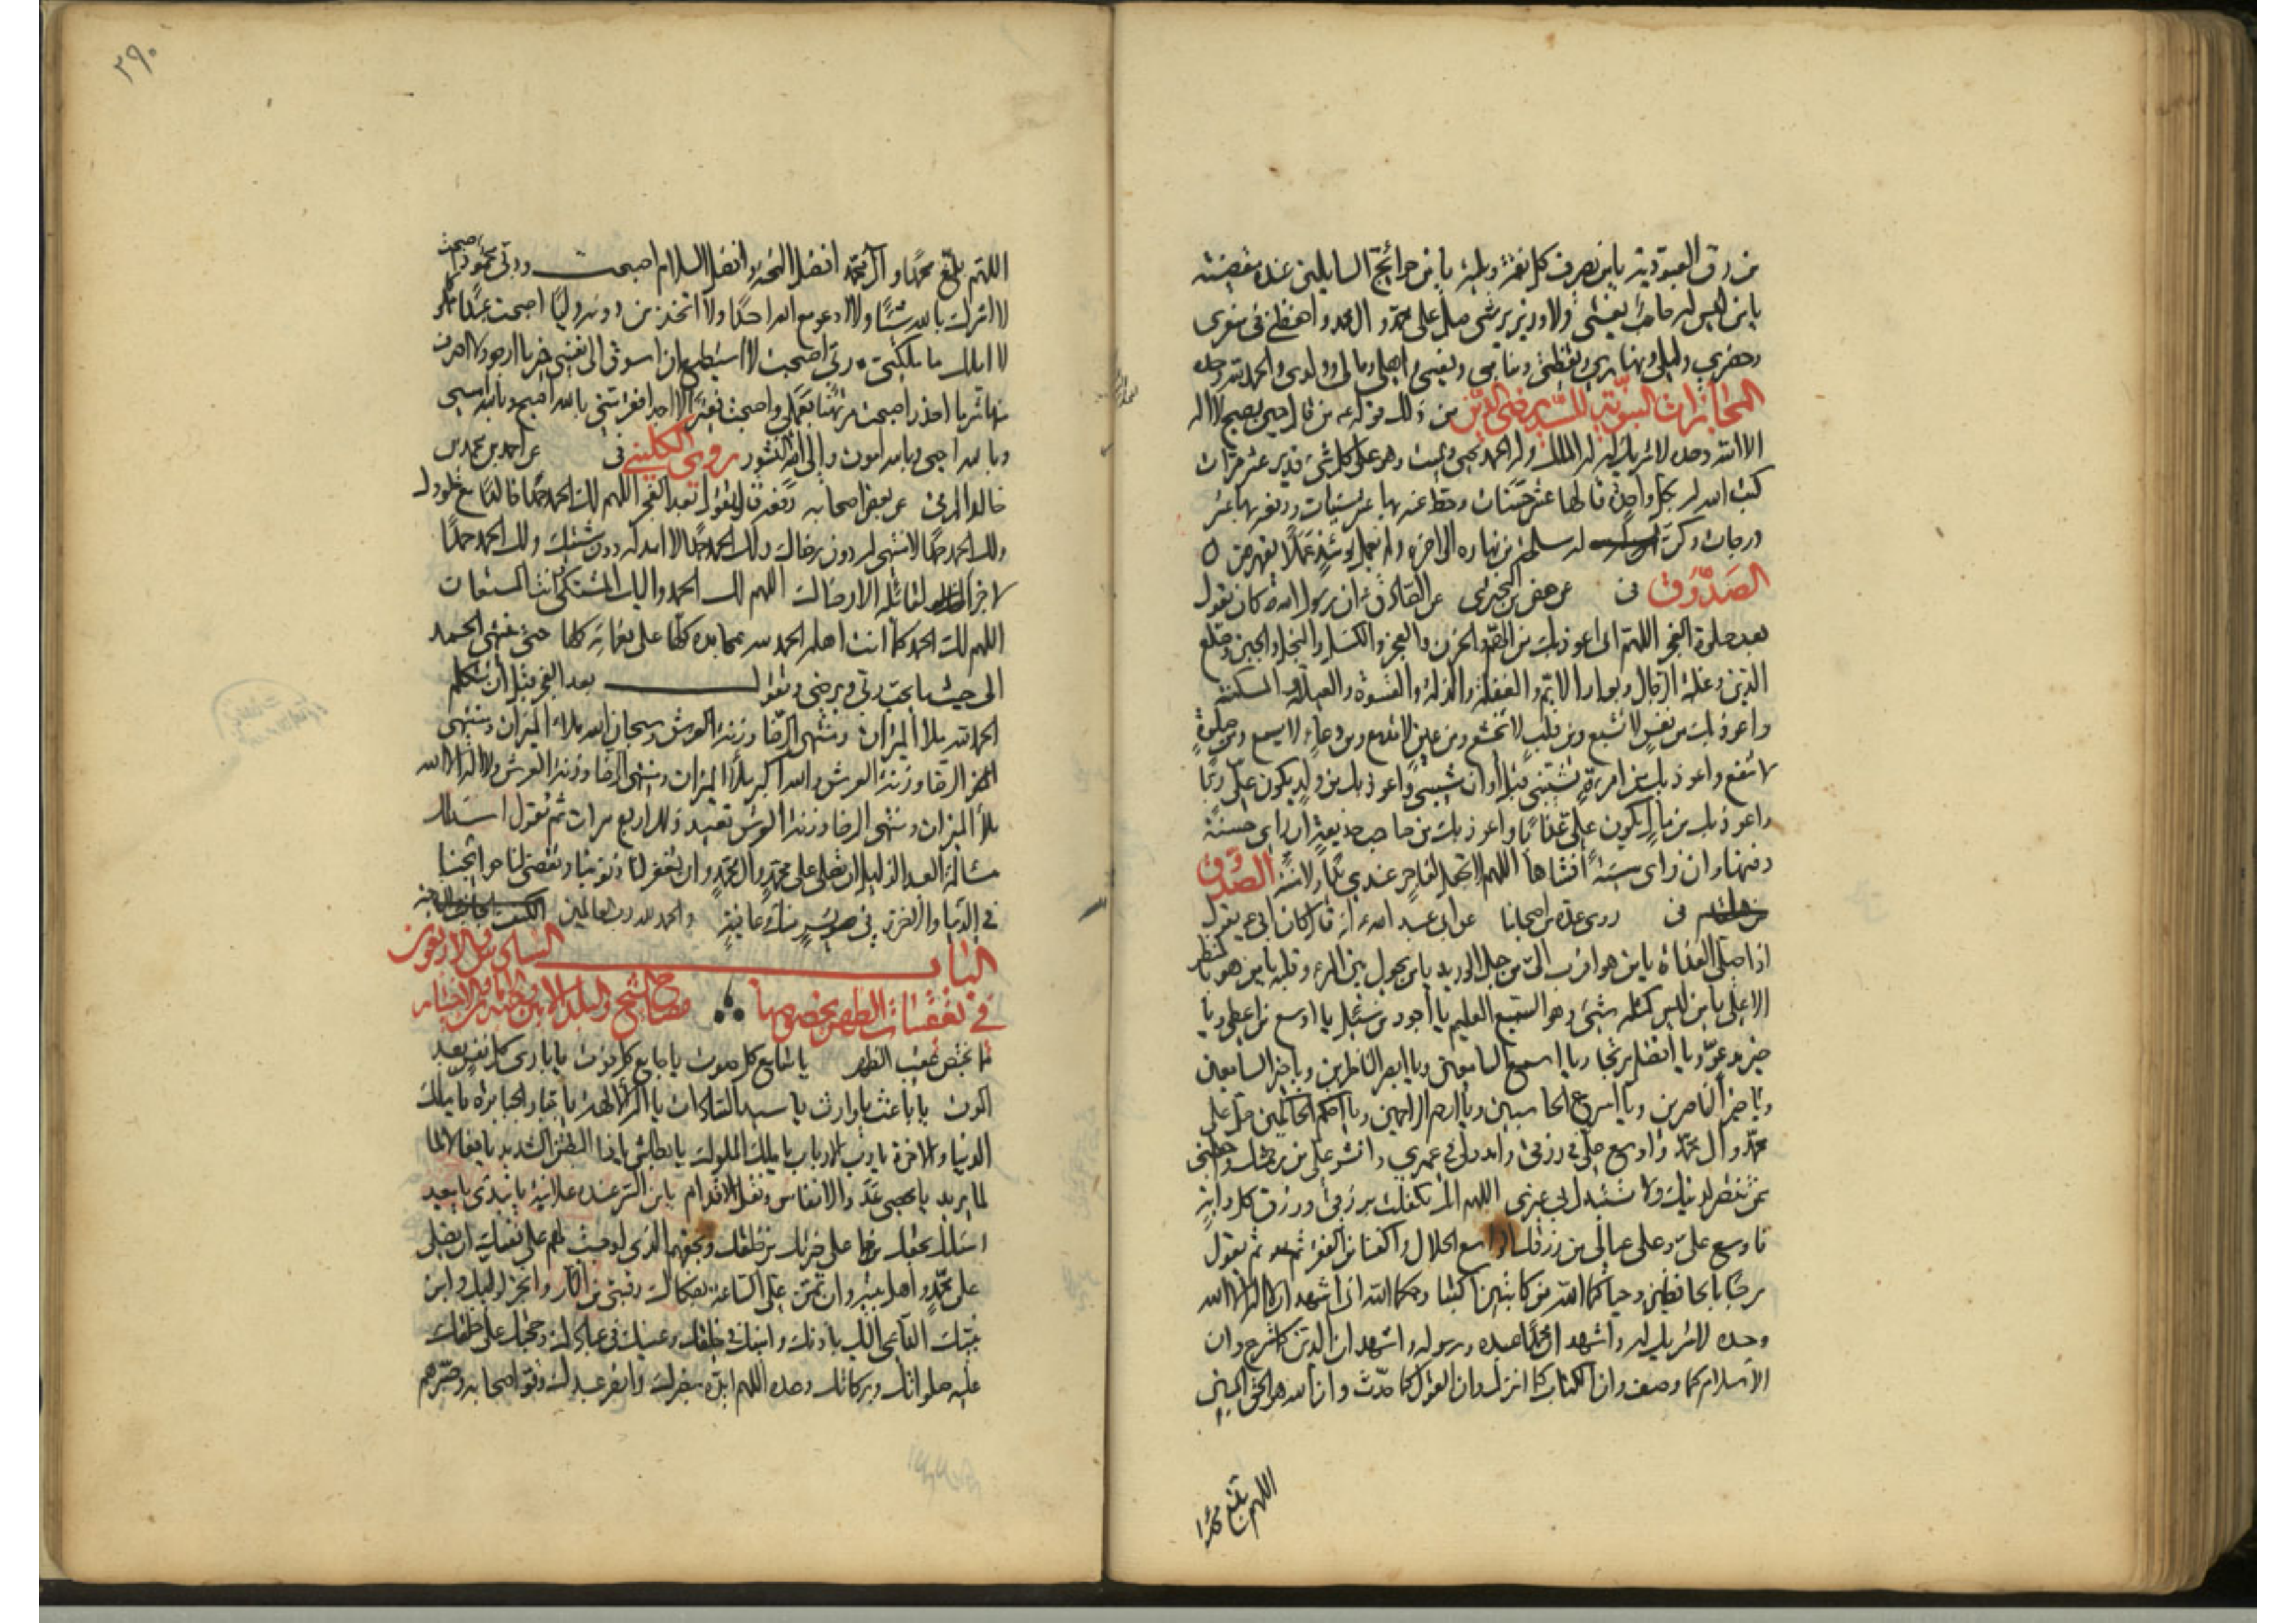 من رق العبودية يا من يصرف كل نقمة وبلية يا من حوائج السايلين عنده مقضية
يا من ليس له حاجب يغشى ولا وزير يرشى صل على محمد وآل محمد واحفظني في سفري
وحضري وليلي ونهاري ويقظتي ومنامي ونفسي واهلي ومالي وولدي والحمد لله وحده
المجازات النبوية للسيد رضي الدين من ذلك قوله من قال حين يصبح لا اله
الا الله وحده لا شريك له له الملك وله الحمد يحيي ويميت وهو على كل شيء قدير عشر مرات
كتب الله له بكل واحدة قالها عشر حسنات وحط عنه بها عشر سيئات ورفعه بها عشر
درجات وكن له مسلحة من نهاره الى اخره ولم يعمل يومئذ عملا يقهرهن
الصدوق في عن حفص بن البختري عن الصادق ان رسول الله كان يقول
بعد صلوة الفجر اللهم اني اعوذ بك من الهم والحزن والعجز والكسل والبخل والجبن وضلع
الدين وغلبة الرجال وبوار الايم والغفلة والذلة والقسوة والعيلة والمسكنة
واعوذ بك من نفس لا تشبع ومن قلب لا يخشع ومن عين لا تدمع ومن دعاء لا يسمع ومن صلوة
لا تنفع واعوذ بك من امرءة تشيبني قبل أوان شيبي واعوذ بك من ولد يكون علي ربا
واعوذ بك من مال يكون علي عذابا واعوذ بك من صاحب خديعة ان راى حسنة
دفنها وان راى سيئة افشاها اللهم لا تجعل لفاجر عندي يدا ولا منة الصدوق
في روى عدة من اصحابنا عن ابي عبد الله انه قال كان ابي يقول
اذا صلى الغداة يا من هو اقرب الي من حبل الوريد يا من يحول بين المرء وقلبه يا من هو بالمنظر
الاعلى يا من ليس كمثله شيء وهو السميع العليم يا أجود من سئل يا اوسع من اعطى ويا
خير مدعو ويا افضل مرتجى ويا اسمع السامعين ويا ابصر الناظرين ويا خير السامعين
ويا خير الناصرين ويا اسرع الحاسبين ويا ارحم الراحمين ويا احكم الحاكمين صل على
محمد وآل محمد واوسع علي في رزقي وامدد لي في عمري وانشر علي من رحمتك واجعلني
ممن تنتصر به لدينك ولا تستبدل بي غيري اللهم انك تكفلت برزقي ورزق كل دابة
فاوسع علي وعلى عيالي من رزقك الواسع الحلال واكفنا من الفقر ثم يقول
مرحبا بالحافظين وحياكما الله من كاتبين اكتبا رحمكما الله اني اشهد ان لا اله الا الله
وحده لا شريك له واشهد ان محمدا عبده ورسوله واشهد ان الدين كما شرع وان
الاسلام كما وصف وان الكتاب كما انزل وان القول كما حدث وان الله هو الحق المبين
اللهم بلغ محمدا
٢٩٠
اللهم بلغ محمدا وآل محمد افضل التحية وافضل السلام اصبحت وربي محمود اصبحت
لا اشرك بالله شيئا ولا ادعو مع الله احدا ولا اتخذ من دونه وليا اصبحت عبدا مملوكا
لا املك ما ملكني ربي اصبحت لا استطيع ان اسوق الى نفسي خير ما ارجو ولا اصرف
عنها شر ما احذر اصبحت مرتهنا بعملي واصبحت فقيرا لا اجد افقر مني بالله اصبح وبالله امسي
وبالله احيى وبالله اموت والى الله النشور روى الكليني في عن احمد بن محمد بن
خالد البرقي عن بعض اصحابه رفعه قال تقول بعد الفجر اللهم لك الحمد حمدا خالدا مع خلودك
ولك الحمد حمدا لا منتهى له دون رضاك ولك الحمد حمدا لا امد له دون مشيتك ولك الحمد حمدا
لا جزاء لقائله الا رضاك اللهم لك الحمد واليك المشتكى وانت المستعان
اللهم لك الحمد كما انت اهله الحمد لله بمحامده كلها على نعمائه كلها حتى ينتهي الحمد
الى حيث ما يحب ربي ويرضى وتقول بعد الفجر قبل أن تتكلم
الحمد لله ملأ الميزان ومنتهى الرضا وزنة العرش وسبحان الله ملاء الميزان ومنتهى
الرضا وزنة العرش والله اكبر ملأ الميزان ومنتهى الرضا وزنة العرش ولا اله الا الله
ملأ الميزان ومنتهى الرضا وزنة العرش تعيد ذلك اربع مرات ثم تقول اسئلك
مسألة العبد الذليل ان تصلي على محمد وآل محمد وان تغفر لنا ذنوبنا وتقضي لنا حوائجنا
في الدنيا والاخرة في يسر منك وعافية والحمد لله رب العالمين
الباب السادس والاربعون
في تعقيبات الظهر بخصوصها مصباح الشيخ والبلد الامين
مما يختص عقيب الظهر يا سامع كل صوت يا جامع كل فوت يا بارئ كل نفس بعد
الموت يا باعث يا وارث يا سيد السادات يا اله الالهة يا جبار الجبابرة يا ملك
الدنيا والاخرة يا رب الارباب يا ملك الملوك يا بطاش يا ذا البطش الشديد يا فعالا
لما يريد يا محصي عدد الانفاس ونقل الاقدام يا من السر عنده علانية يا مبدئ يا معيد
اسئلك بحقك على خيرتك من خلقك وبحقهم الذي اوجبت لهم على نفسك ان تصلي
على محمد واهل بيته وان تمن علي الساعة بفكاك رقبتي من النار وانجز لوليك وابن
نبيك الداعي اليك باذنك وامينك في خلقك وعينك في عبادك وحجتك على خلقك
عليه صلواتك وبركاتك وعده اللهم ايده بنصرك وانصر عبدك وقو اصحابه وصبرهم